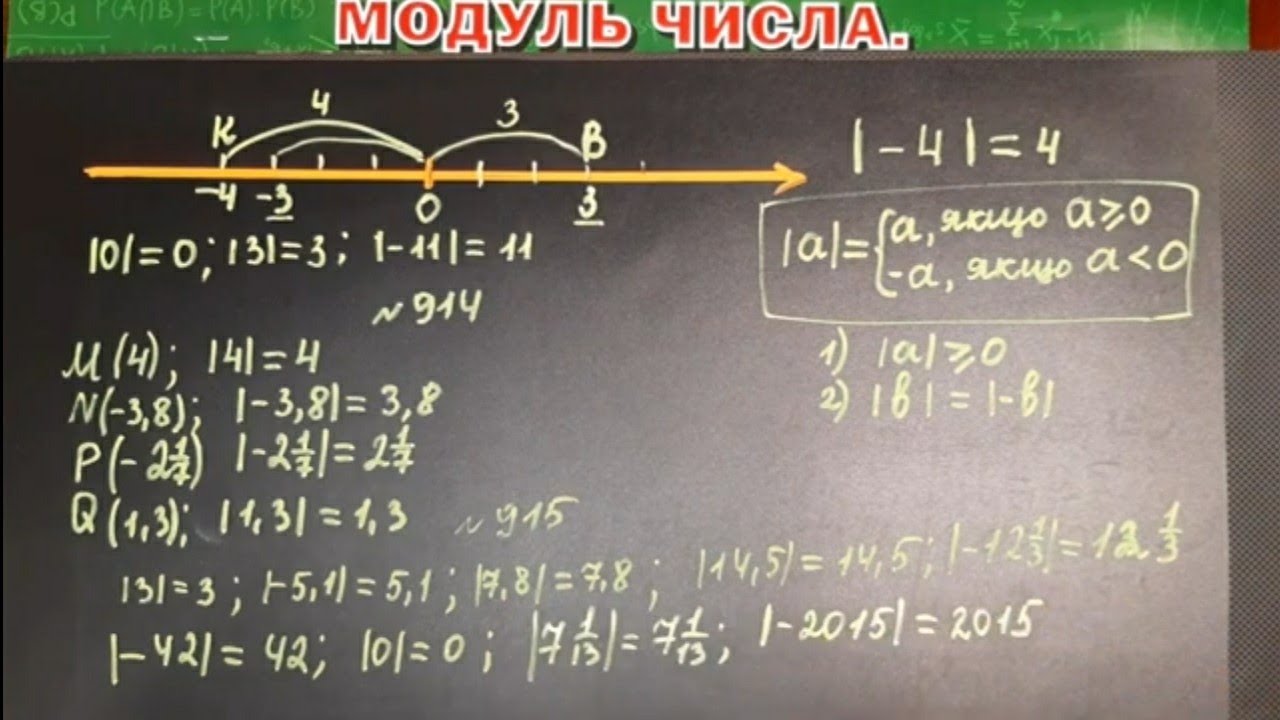 P(A∩B)=P(A).P(B)
МОДУЛЬ ЧИСЛА.
4 3
K B
-4 -3 0 3
|-4|=4
|0|=0; |3|=3; |-11|=11
|a|={a, якщо a≥0
-a, якщо a<0
№914
M(4); |4|=4
N(-3,8); |-3,8|=3,8
P(-2 1/7) |-2 1/7|=2 1/7
Q(1,3); |1,3|=1,3
1) |a|≥0
2) |b|=|-b|
№915
|3|=3; |-5,1|=5,1; |7,8|=7,8; |14,5|=14,5; |-12 1/3|=12 1/3
|-42|=42; |0|=0; |7 1/13|=7 1/13; |-2015|=2015